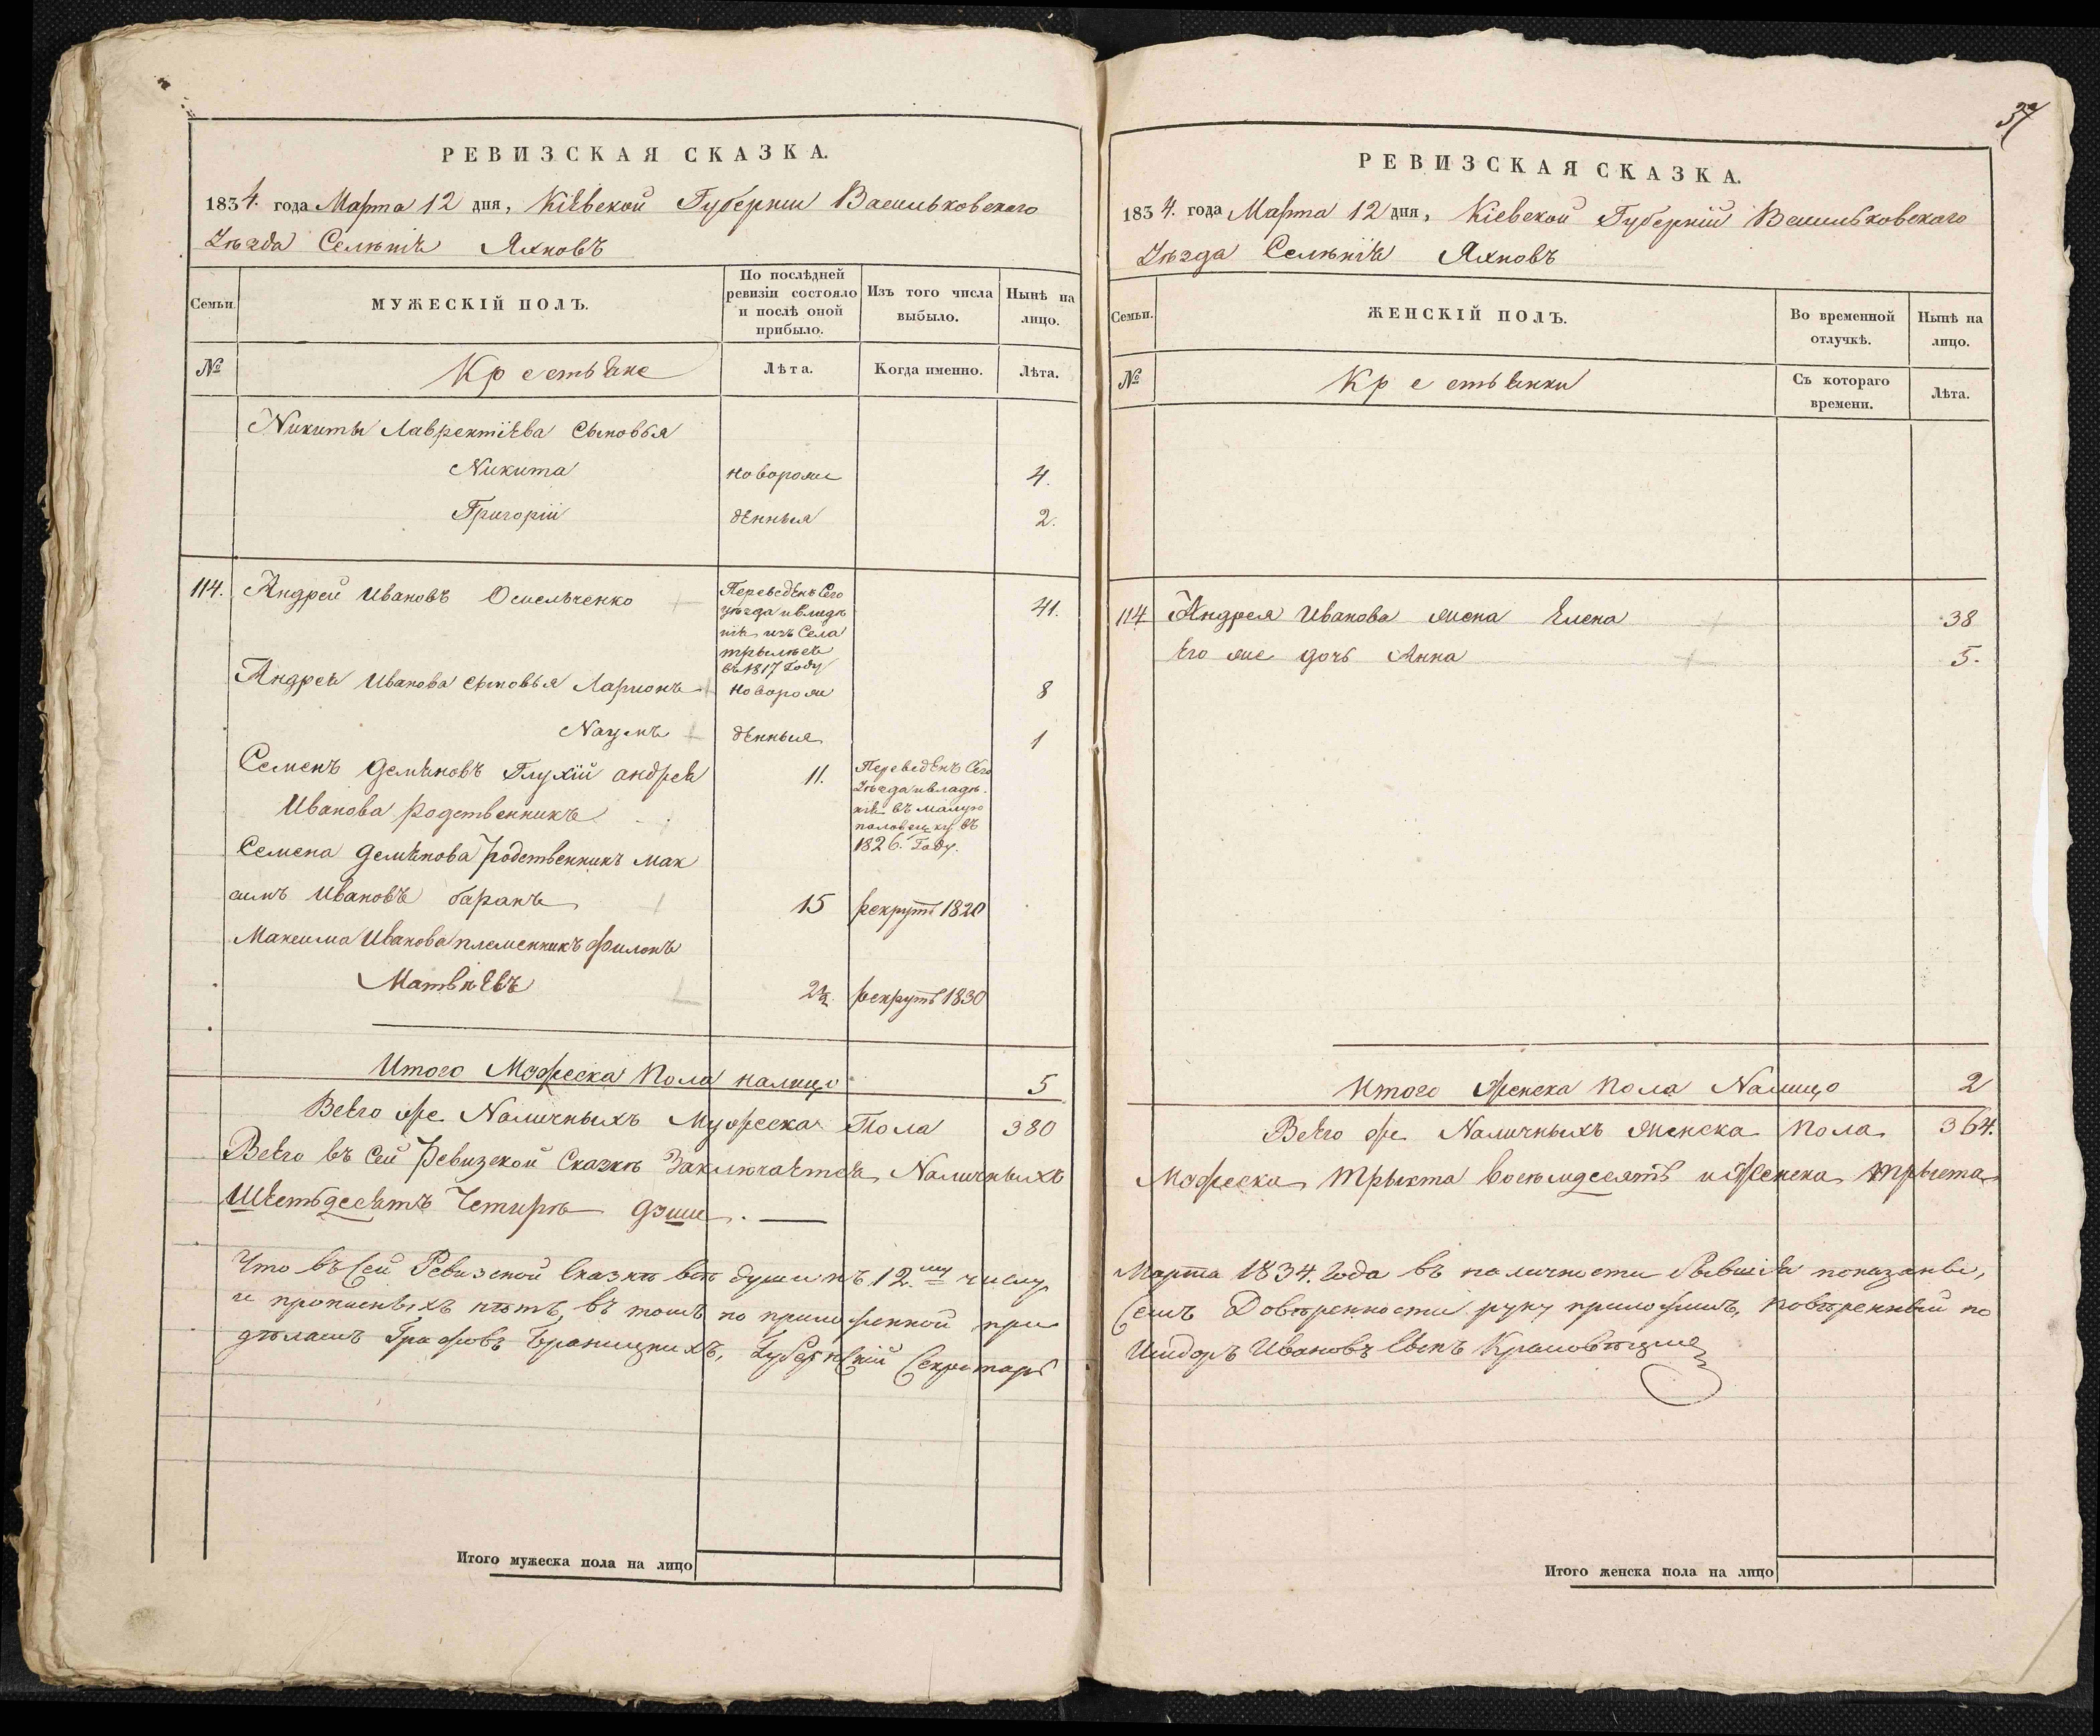 РЕВИЗСКАЯ СКАЗКА.
1834. года Марта 12 дня, Кіевской Губерніи Васильковскаго
Уѣзда Селѣнія Яхновъ
Семьи.
МУЖЕСКІЙ ПОЛЪ.
По послѣдней
ревизіи состояло
и послѣ оной
прибыло.
Изъ того числа
выбыло.
Нынѣ на
лицо.
№
Крестьяне
Лѣта.
Когда именно.
Лѣта.
Никиты Лаврентіева Сыновья
Никита новорож 4.
Григорій денныя 2.
114. Андрей Ивановъ Омельченко 41.
Переведенъ Сего
уѣзда и владѣ
нія изъ Села
въ 1817 Году
Андрея Иванова сыновья Ларионъ новорож 8
Наумъ денныя 1
Семенъ Демяновъ Глухій андрея 11.
Иванова родственникъ
Переведенъ Сего
Уѣзда и владѣ.
нія въ малую
половецку въ
1826. Году.
Семена Демянова родственникъ Мак
симъ Ивановъ баранъ 15 рекрутъ 1820
Максима Иванова племенникъ Филонъ
Матвѣевъ 2½. рекрутъ 1830
ИтогоМожеска Пола налицо 5
Всего же Наличныхъ Мужеска Пола 380
Всего въ Сей Ревизской Сказкѣ Заключается Наличныхъ
Шестьдесятъ Четирѣ души.
Что въ Сей Ревизской Сказкѣ всѣ души къ 12.му числу
и прописныхъ нѣтъ, въ томъ по приложенной при
дѣламъ Графовъ Браницкихъ, Губернскій Секретарь
Итого мужеска пола на лицо
37
РЕВИЗСКАЯ СКАЗКА.
1834. года Марта 12 дня, Кіевской Губерній Васильковскаго
Уѣзда Селѣнія Яхновъ
Семьи.
ЖЕНСКІЙ ПОЛЪ.
Во временной
отлучкѣ.
Нынѣ на
лицо.
№
Крестьянки
Съ котораго
времени.
Лѣта.
114 Андрея Иванова жена Елена 38
Его же дочь Анна 5.
Итого Женска Пола Налицо 2
Всего же Наличныхъ женска Пола 364.
Можеска Трыста восемдесятъ и Женска трыста
Марта 1834. Года въ наличности бывшія показаны,
Семъ Довѣренности руку приложилъ, повѣренный по
Исидоръ Ивановъ Сынъ
Итого женска пола на лицо